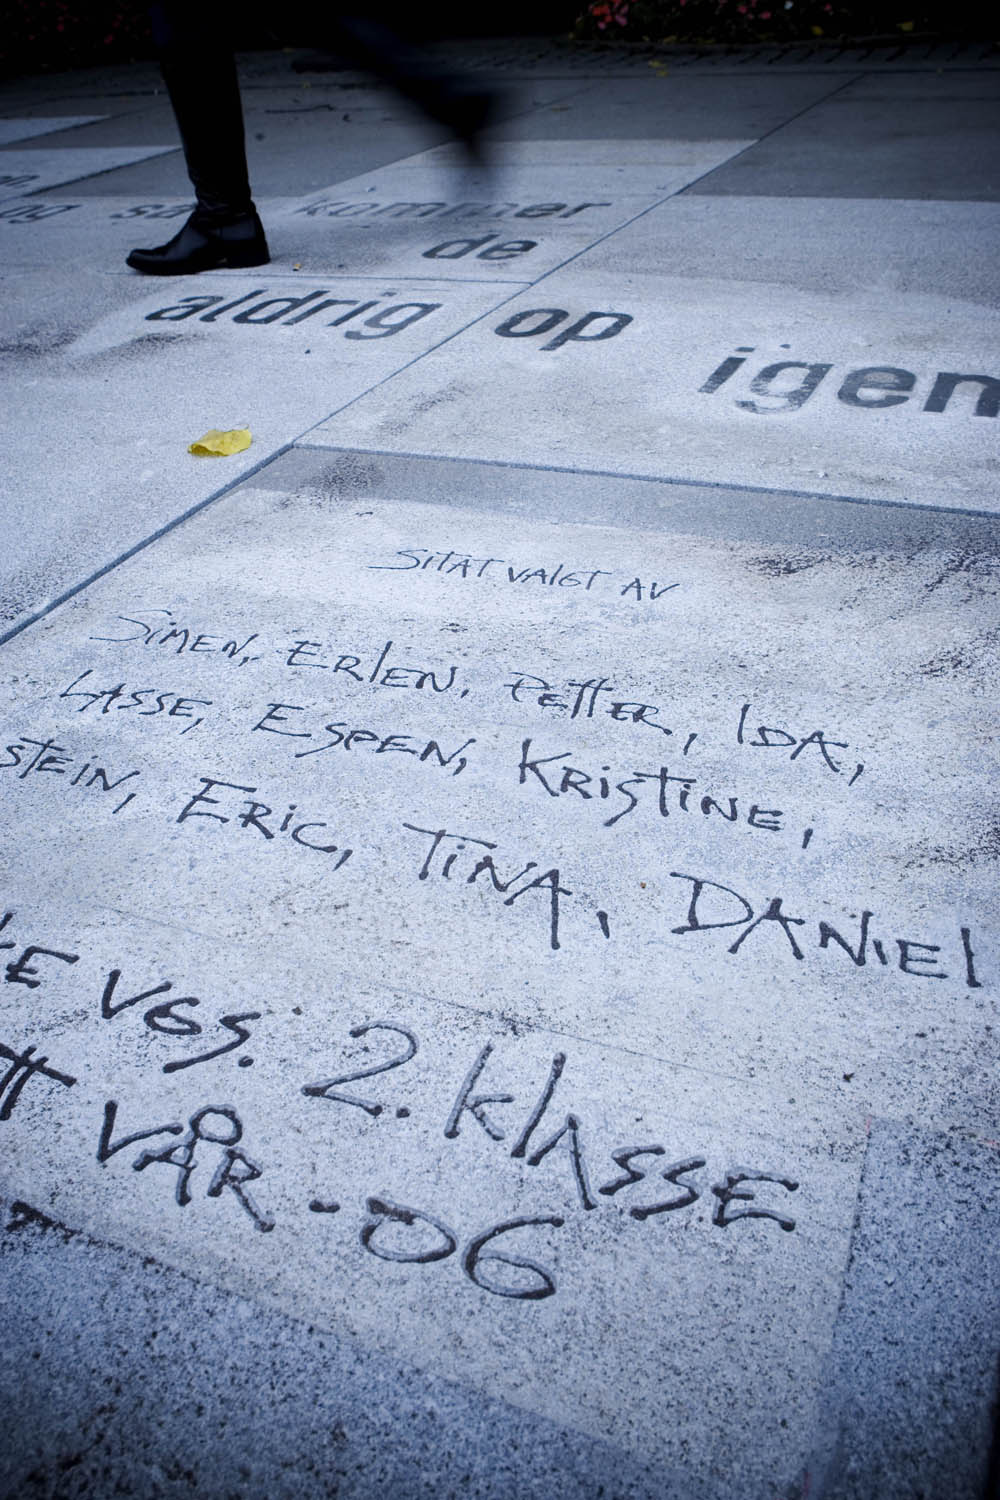 kommer
de
aldrig op
igen
SITAT VALGT AV
SIMEN, ERLEN, PETTER, IDA,
LASSE, ESPEN, KRISTINE,
STEIN, ERIC, TINA, DANIEL
VGS. 2. KLASSE
VÅR - 06